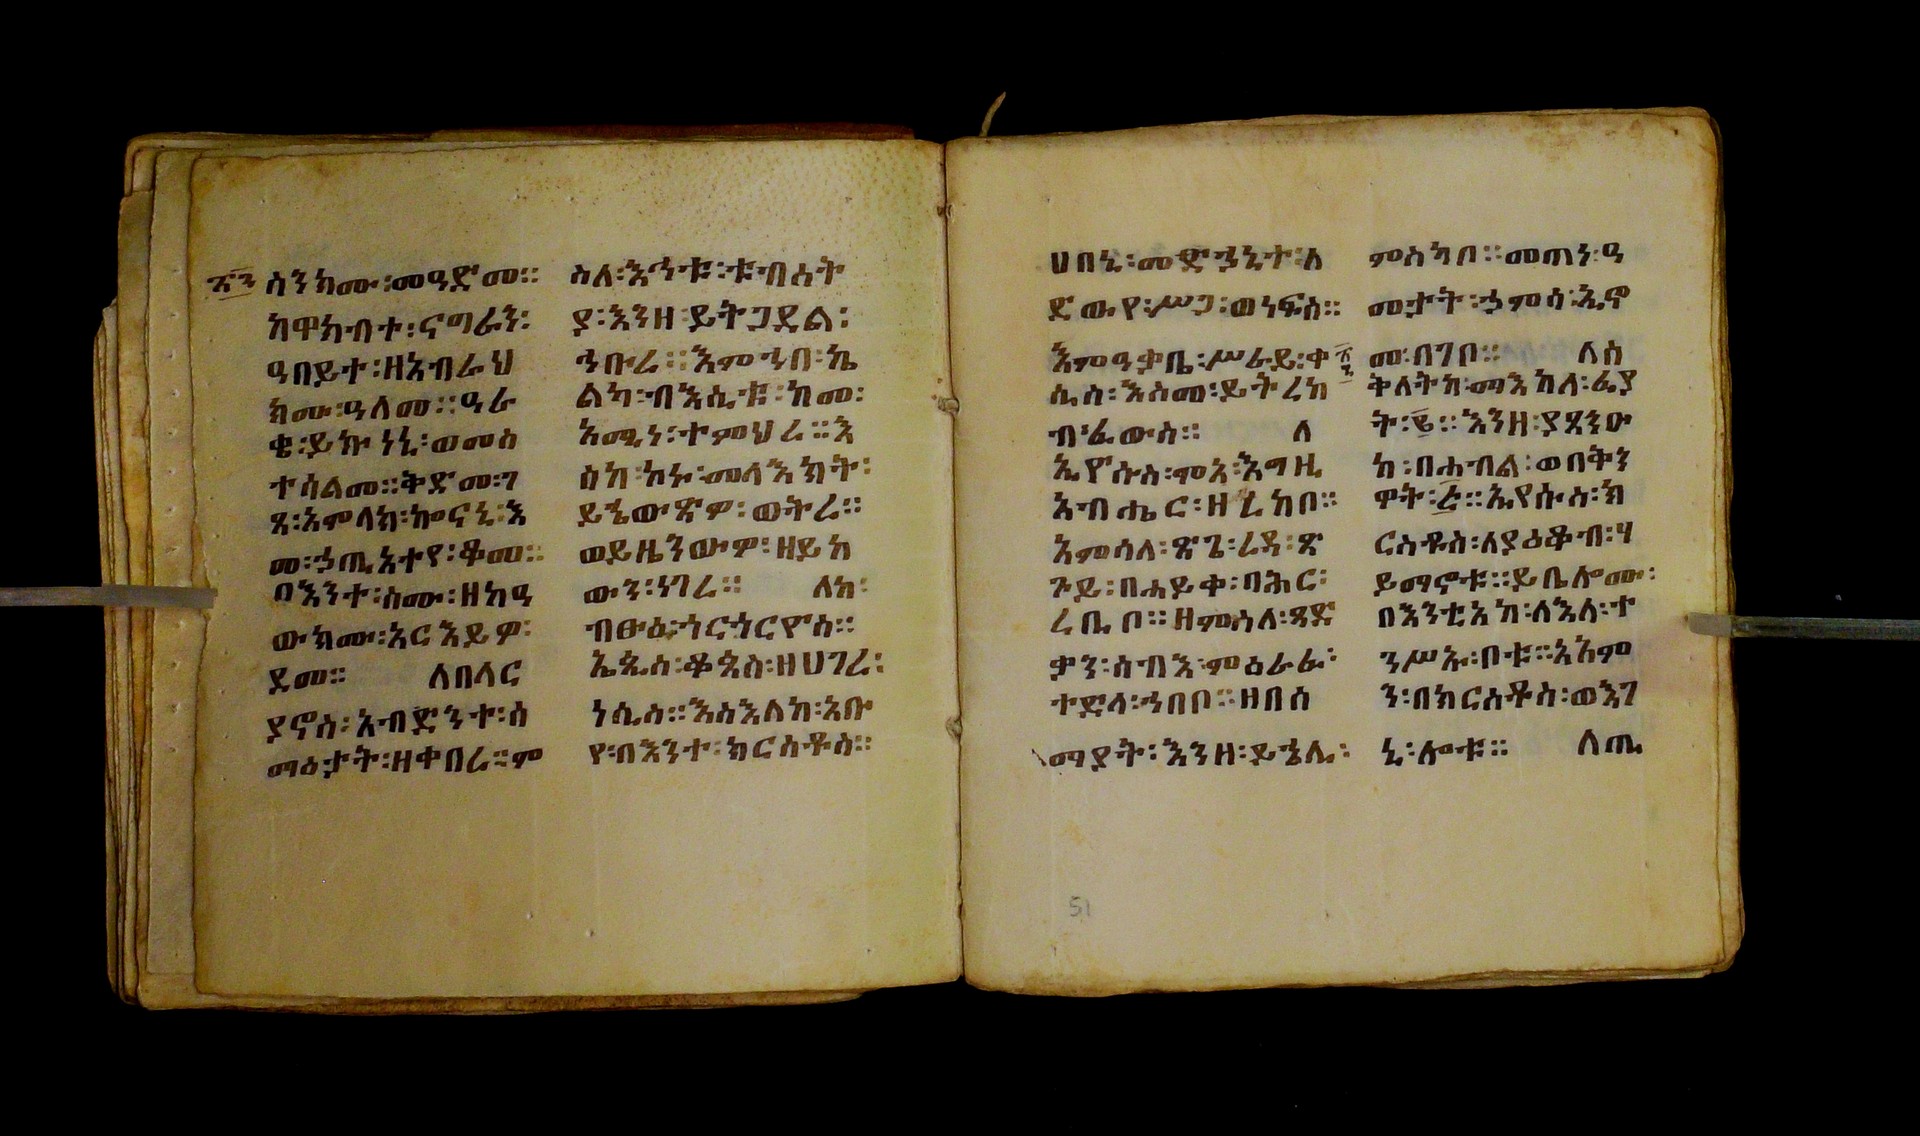 ስንክሙ፡መዓድመ።
ከዋክብተ፡ናግራን፡
ዓበይተ፡ዘአብራህ
ክሙ፡ዓለመ።ዓራ
ቄ፡ይኩነኒ፡ወመስ
ተሳልመ።ቅድመ፡ገ
ጸ፡አምላክ፡ኰናኒ፡እ
መ፡ኃጢአተየ፡ቆመ።
በእንተ፡ስሙ፡ዘከዓ
ውክሙ፡አርእይዎ፡
ደመ። ለበላር
ያኖስ፡አብድንተ፡ሰ
ማዕታት፡ዘቀበረ።ም
ስለ፡እኅቱ፡ቱብሰት
ያ፡እንዘ፡ይትጋደል፡
ኅቡረ።እምኀበ፡ኤ
ልካ፡ብእሲቱ፡ከመ፡
አሚነ፡ተምህረ።እ
ስከ፡ከኑ፡መላእክት፡
ይኄውጽዎ፡ወትረ።
ወይዜንውዎ፡ዘይከ
ውን፡ነገረ። ለከ፡
ብፁዕ፡ጎርጎርዮስ።
ኤጲስ፡ቆጶስ፡ዘሀገረ፡
ነሲስ።እስእለከ፡አቡ
የ፡በእንተ፡ክርስቶስ።
ሀበኒ፡መድኃኒተ፡ለ
ደውየ፡ሥጋ፡ወነፍስ።
እምዓቃቤ፡ሥራይ፡ቀ
ሲስ፡እስመ፡ይትረከ
ብ፡ፈውስ። ለ
ኢዮሱስ፡ምእ፡እግዚ
አብሔር፡ዘረከቦ።
አምሳለ፡ጽጌ፡ረዳ፡ጽ
ጉይ፡በሐይቀ፡ባሕር፡
ረቢቦ።ዘምስለ፡ጻድ
ቃን፡ሰብእ፡ምዕራፉ፡
ተድላ፡ኀበቦ።ዘበሰ
ማያት፡እንዘ፡ይኄሊ፡
ምስካቦ።መጠነ፡ዓ
መታት፡ኃምሳ፡ኢኖ
መ፡በገቦ። ለስ
ቅለትከ፡ማእከለ፡ፈያ
ት፡፪።እንዘ፡ያጸንዑ
ከ፡በሐብል፡ወበቅን
ዋት፡፭።ኢየሱስ፡ክ
ርስቶስ፡ለያዕቆብ፡ሃ
ይማኖቱ።ይቤሎሙ፡
በእንቲአከ፡ለእለ፡ተ
ንሥኡ፡ቦቱ።አአም
ን፡በክርስቶስ፡ወእገ
ኒ፡ሎቱ። ለጢ
51